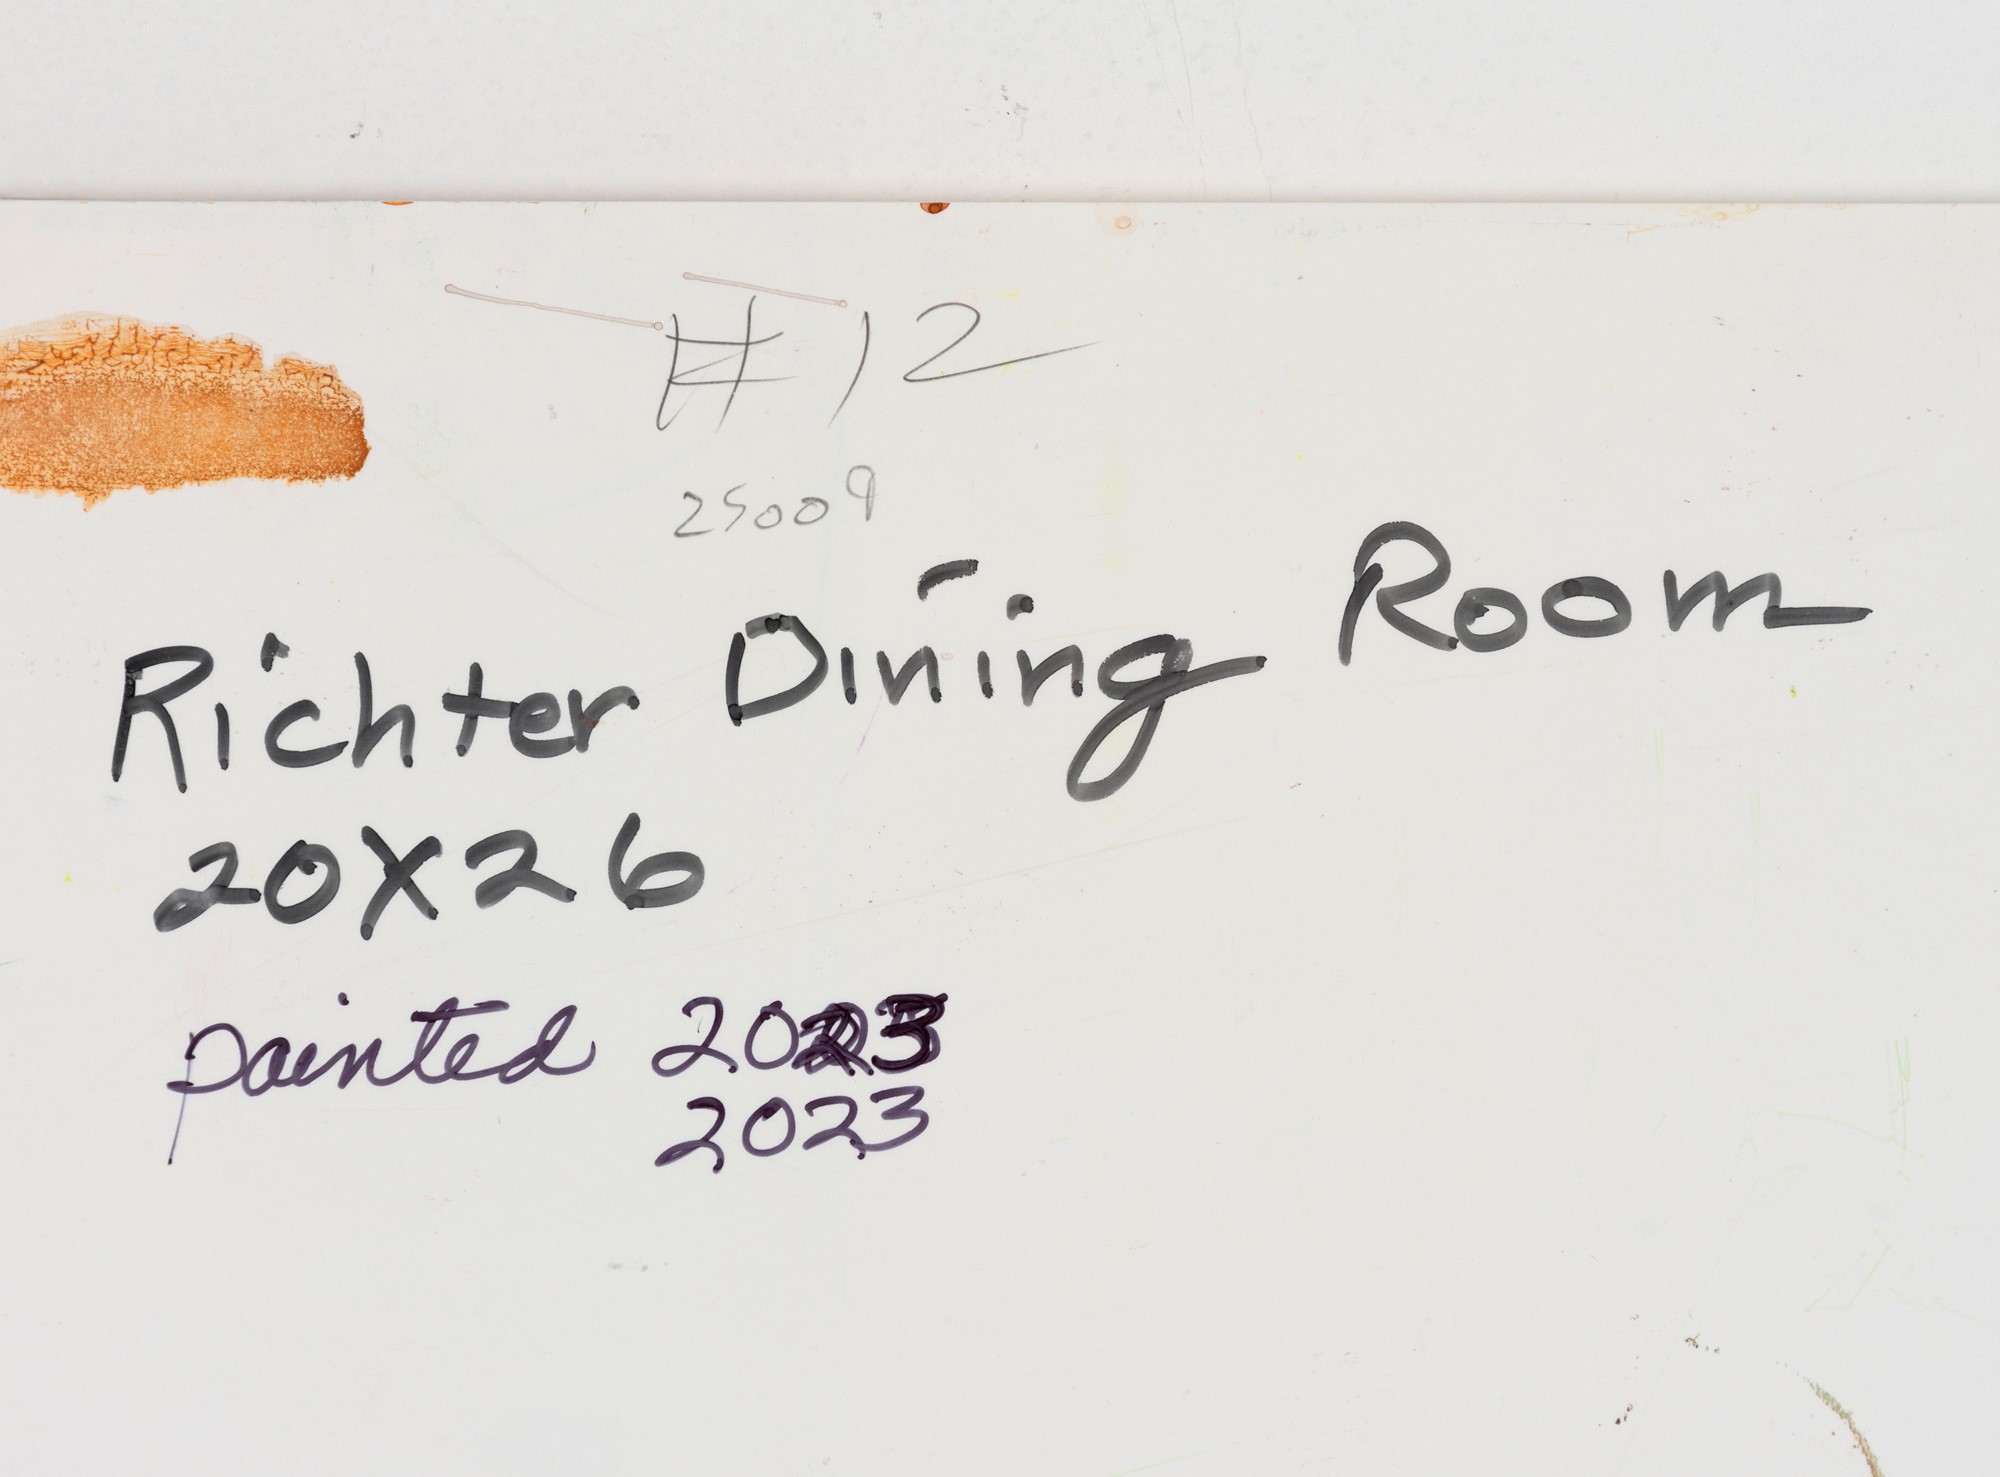 #12
25009
Richter Dining Room
20X26
painted 2023
2023